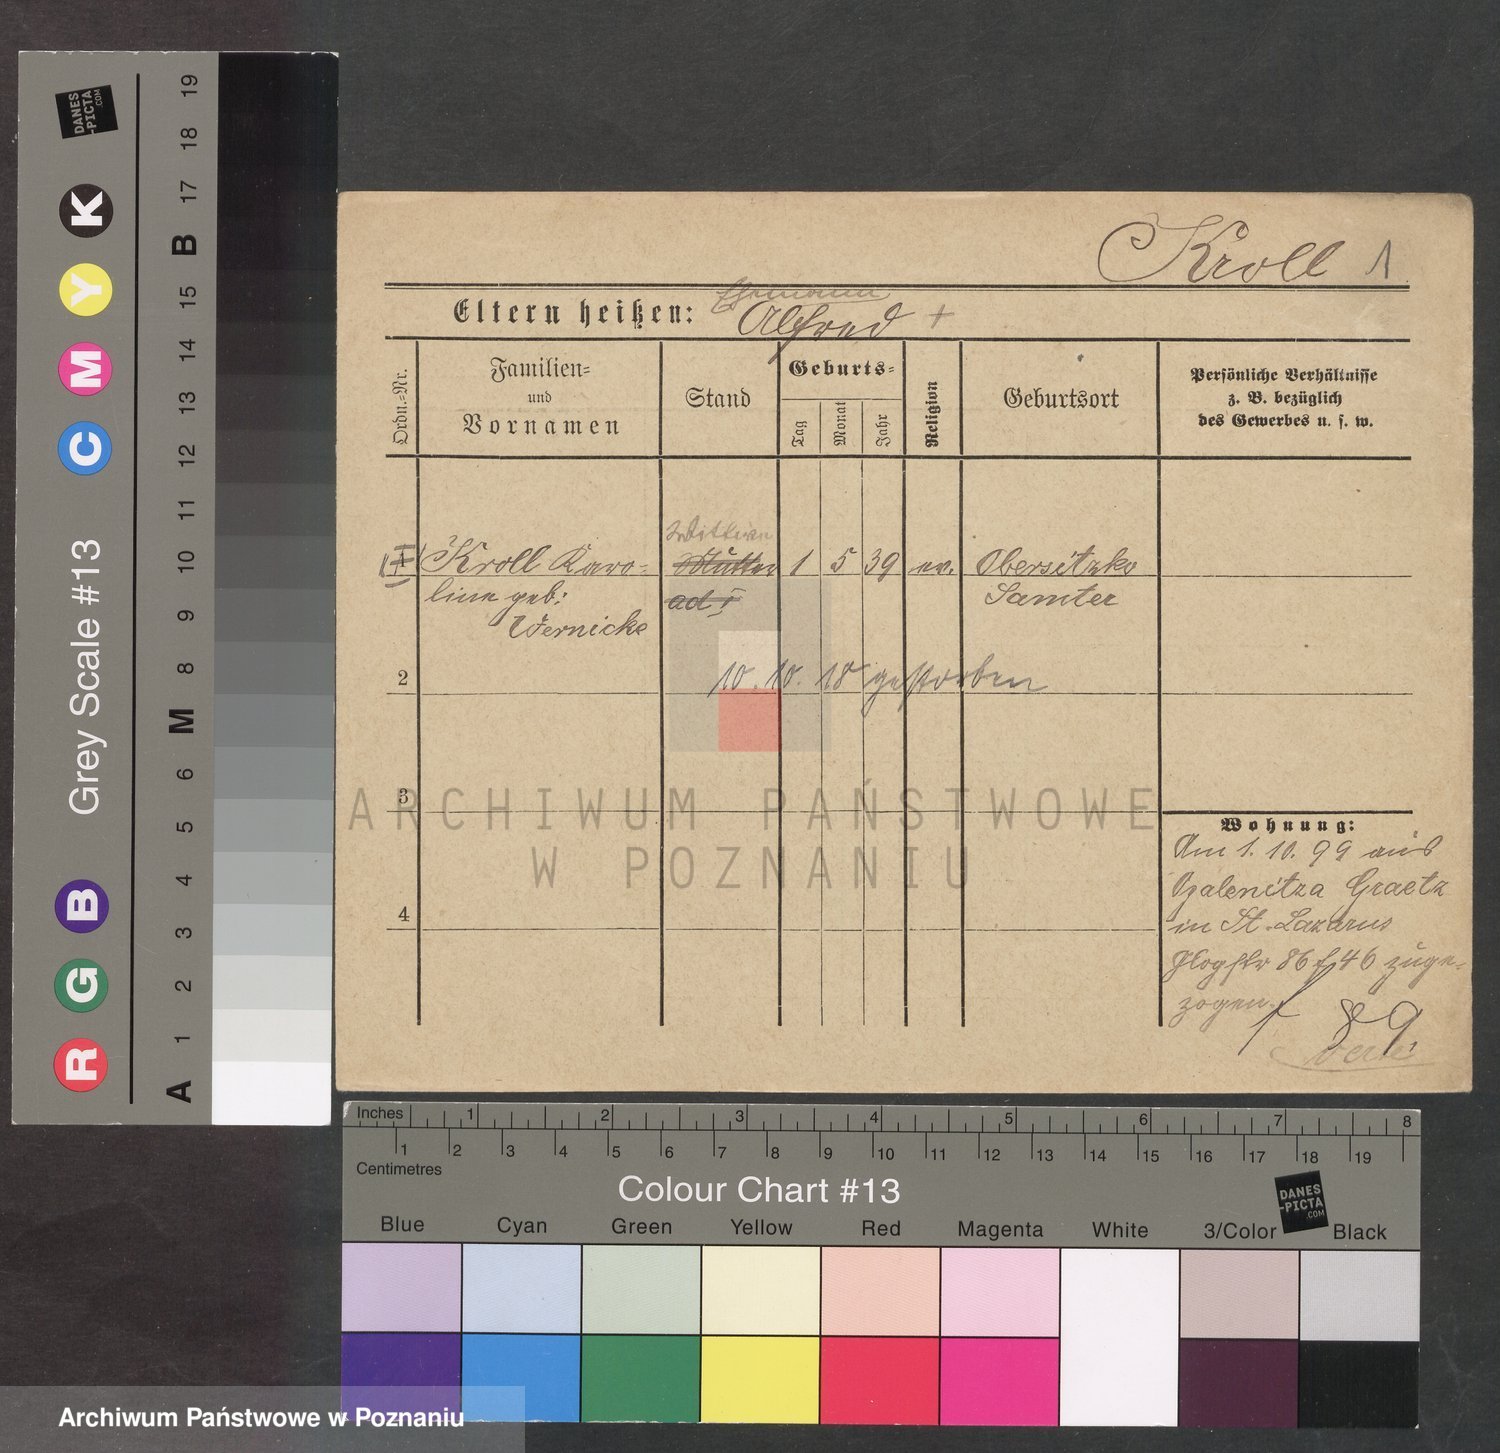 DANES
-PICTA
.COM
K
Y
M
C
B
G
R
Grey Scale #13
19
18
17
B
15
14
13
12
11
10
9
8
M
6
5
4
3
2
1
A
Kroll 1
Ehemann
Eltern heißen: Alfred +
Ordn.-Nr.
Familien=
und
Vornamen
Stand
Geburts=
Tag
Monat
Jahr
Religion
Geburtsort
Persönliche Verhältnisse
z. B. bezüglich
des Gewerbes u. s. w.
Wittwe
1 Kroll Karo= Mutter 1 5 39 ev. Obersitzko
line geb: ad I Samter
Wernicke
2 10. 10. 18 gestorben
3
4
ARCHIWUM PAŃSTWOWE
W POZNANIU
Wohnung:
Am 1. 10. 99 aus
Opalenitza Graetz
in St. Lazarus
Glogstr 86 f 46 zuge-
zogen. f 89
Inches 1 2 3 4 5 6 7 8
1 2 3 4 5 6 7 8 9 10 11 12 13 14 15 16 17 18 19
Centimetres
Colour Chart #13
DANES
-PICTA
.COM
Blue Cyan Green Yellow Red Magenta White 3/Color Black
Archiwum Państwowe w Poznaniu